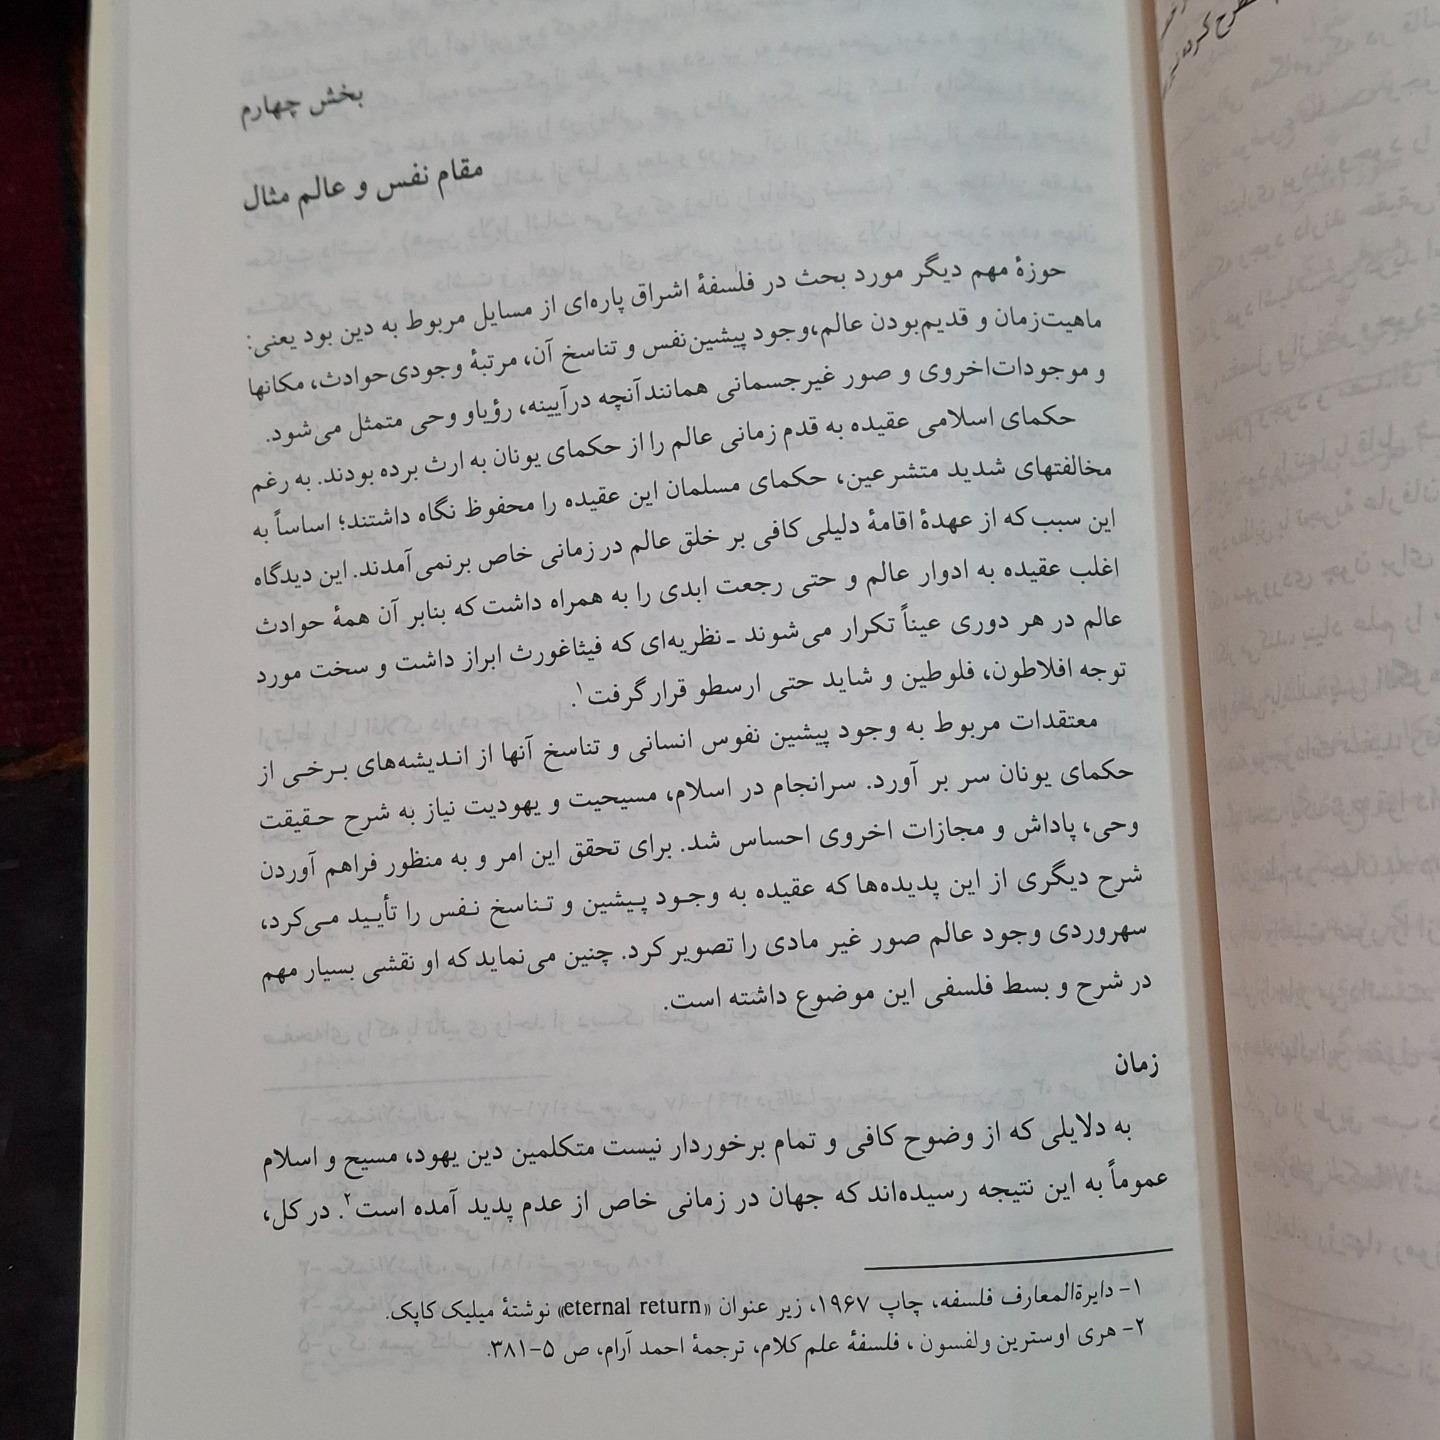 بخش چهارم
مقام نفس و عالم مثال
حوزهٔ مهم دیگر مورد بحث در فلسفهٔ اشراق پاره‌ای از مسایل مربوط به دین بود یعنی:
ماهیت‌زمان و قدیم‌بودن عالم،وجود پیشین‌نفس و تناسخ آن، مرتبهٔ وجودی‌حوادث، مکانها
و موجودات‌اخروی و صور غیرجسمانی همانندآنچه درآیینه، رؤیاو وحی متمثل می‌شود.
حکمای اسلامی عقیده به قدم زمانی عالم را از حکمای یونان به ارث برده بودند. به رغم
مخالفتهای شدید متشرعین، حکمای مسلمان این عقیده را محفوظ نگاه داشتند؛ اساساً به
این سبب که از عهدهٔ اقامهٔ دلیلی کافی بر خلق عالم در زمانی خاص برنمی‌آمدند. این دیدگاه
اغلب عقیده به ادوار عالم و حتی رجعت ابدی را به همراه داشت که بنابر آن همهٔ حوادث
عالم در هر دوری عیناً تکرار می‌شوند ـ نظریه‌ای که فیثاغورث ابراز داشت و سخت مورد
توجه افلاطون، فلوطین و شاید حتی ارسطو قرار گرفت۱.
معتقدات مربوط به وجود پیشین نفوس انسانی و تناسخ آنها از اندیشه‌های برخی از
حکمای یونان سر بر آورد. سرانجام در اسلام، مسیحیت و یهودیت نیاز به شرح حقیقت
وحی، پاداش و مجازات اخروی احساس شد. برای تحقق این امر و به منظور فراهم آوردن
شرح دیگری از این پدیده‌ها که عقیده به وجود پیشین و تناسخ نفس را تأیید می‌کرد،
سهروردی وجود عالم صور غیر مادی را تصویر کرد. چنین می‌نماید که او نقشی بسیار مهم
در شرح و بسط فلسفی این موضوع داشته است.
زمان
به دلایلی که از وضوح کافی و تمام برخوردار نیست متکلمین دین یهود، مسیح و اسلام
عموماً به این نتیجه رسیده‌اند که جهان در زمانی خاص از عدم پدید آمده است۲. در کل،
۱- دایرةالمعارف فلسفه، چاپ ۱۹۶۷، زیر عنوان «eternal return» نوشتهٔ میلیک کاپک.
۲- هری اوسترین ولفسون ، فلسفهٔ علم کلام، ترجمهٔ احمد آرام، ص ۵-۳۸۱.